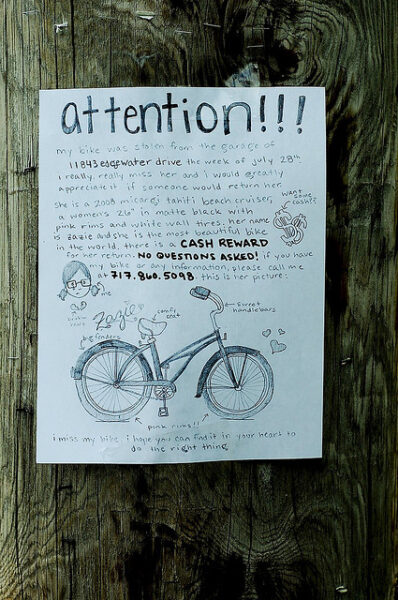 attention!!!
my bike was stolen from the garage of
11843 edgewater drive the week of july 28th
i really, really miss her and i would greatly
appreciate it if someone would return her.
she is a 2008 micargi tahiti beach cruiser,
a women's 26" in matte black with
pink rims and white wall tires. her name
is zazie and she is the most beautiful bike
in the world. there is a CASH REWARD
for her return. NO QUESTIONS ASKED! if you have
my bike or any information, please call me
at 717.860.5098. this is her picture:
want
some
cash??
me
Zazie
comfy
seat
sweet
handlebars
fenders
pink rims!!
i miss my bike. i hope you can find it in your heart to
do the right thing